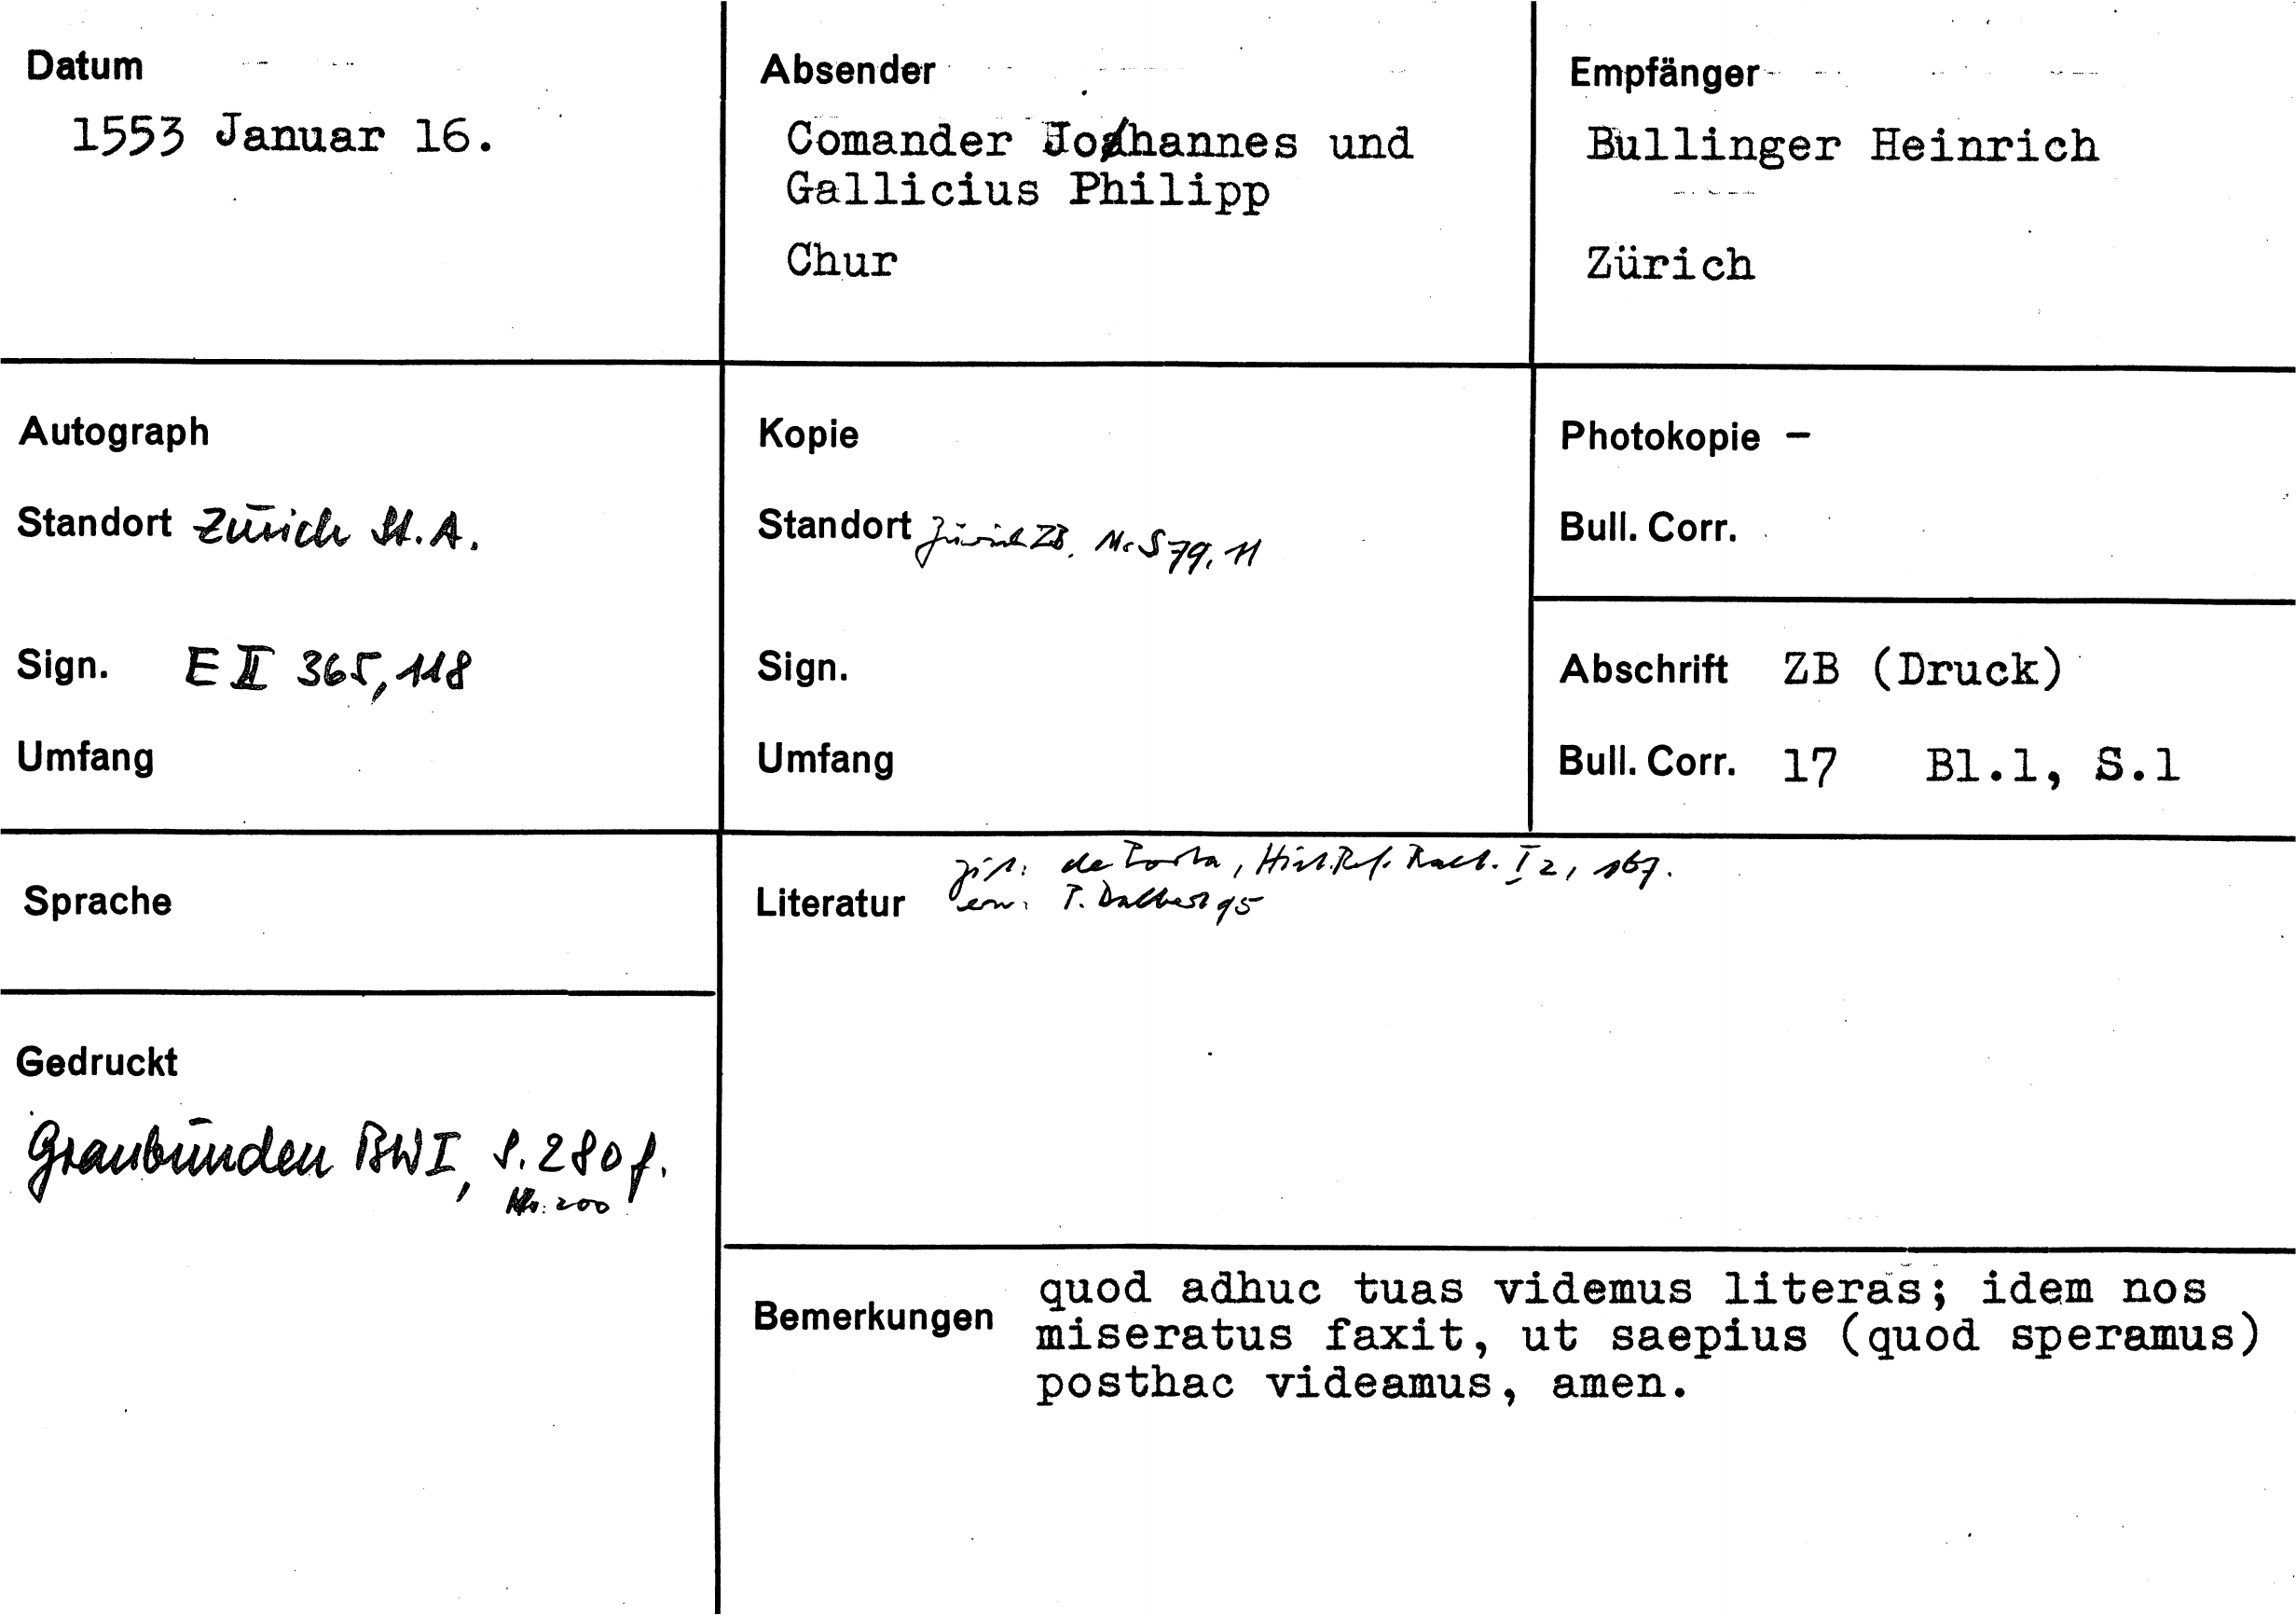 Datum
1553 Januar 16.
Absender
Comander Johannes und
Gallicius Philipp
Chur
Empfänger
Bullinger Heinrich
Zürich
Autograph
Standort Zürich St.A.
Sign. E II 365,118
Umfang
Kopie
Standort Zürich ZB. Ms S 79, 11
Sign.
Umfang
Photokopie –
Bull. Corr.
Abschrift ZB (Druck)
Bull. Corr. 17 Bl.1, S.1
Sprache
Gedruckt
Graubünden BW I, S. 280 f.
Nr. 200
zit: de Porta, Hist. Ref. Raet. I 2, 167.
Literatur erw: T. Dalbert 95
Bemerkungen
quod adhuc tuas videmus literas; idem nos
miseratus faxit, ut saepius (quod speramus)
posthac videamus, amen.